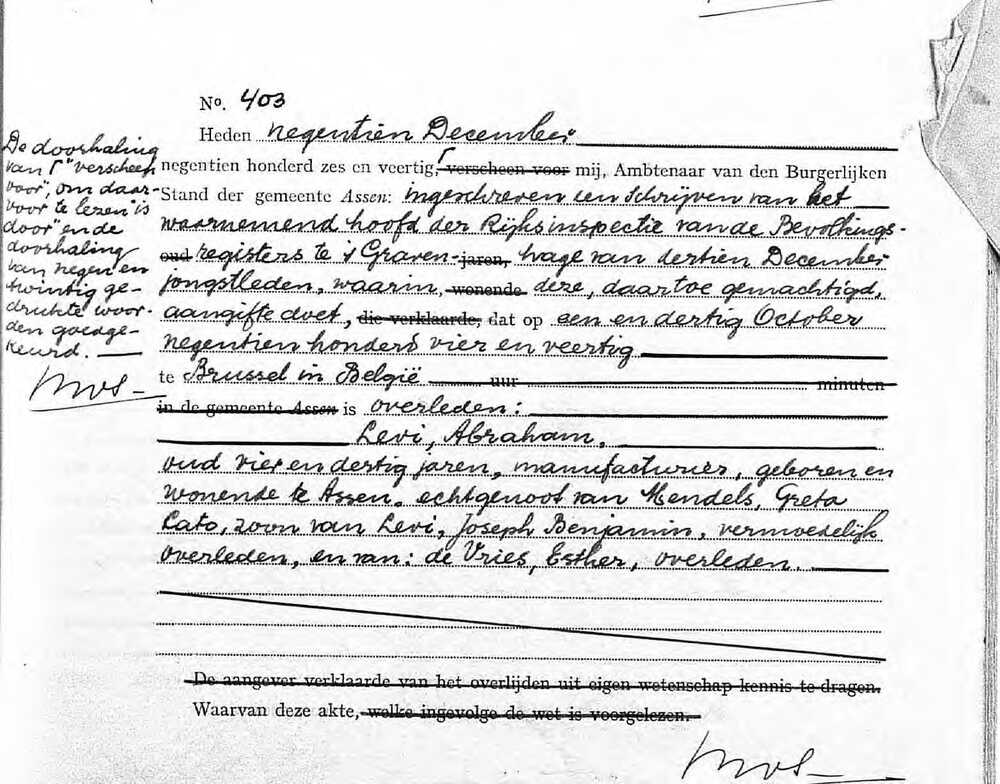 No. 403
Heden negentien December
negentien honderd zes en veertig, verscheen voor mij, Ambtenaar van den Burgerlijken
Stand der gemeente Assen: ingeschreven een schrijven van het
waarnemend hoofd der Rijksinspectie van de Bevolkings-
oud registers te 's Graven- jaren, hage van dertien December
jongstleden, waarin, wonende deze, daartoe gemachtigd,
aangifte doet, die verklaarde, dat op een en dertig October
negentien honderd vier en veertig
te Brussel in België uur minuten
in de gemeente Assen is overleden:
Levi, Abraham,
oud vier en dertig jaren, manufacturier, geboren en
wonende te Assen, echtgenoot van Mendels, Greta
Cato, zoon van Levi, Joseph Benjamin, vermoedelijk
overleden, en van: de Vries, Esther, overleden.
De aangever verklaarde van het overlijden uit eigen wetenschap kennis te dragen.
Waarvan deze akte, welke ingevolge de wet is voorgelezen.
De doorhaling
van "verscheen
voor", om daar-
voor te lezen "is
door" en de
doorhaling
van negen en
twintig ge-
drukte woor-
den goedge-
keurd.